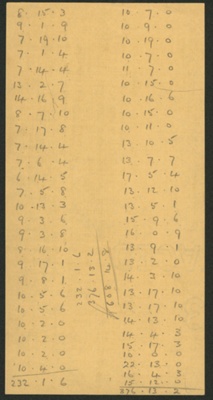 8 . 15 . 3
9 . 1 . 9
7 . 19 . 10
7 . 1 . 4
7 . 14 . 4
13 . 2 . 7
14 . 16 . 9
8 . 7 . 10
7 . 17 . 8
7 . 14 . 4
7 . 6 . 4
6 . 14 . 5
7 . 5 . 8
10 . 13 . 3
9 . 3 . 6
9 . 3 . 8
8 . 16 . 10
9 . 17 . 1
9 . 8 . 1
10 . 5 . 6
10 . 5 . 6
10 . 2 . 0
10 . 2 . 0
10 . 2 . 0
10 . 4 . 0
232 . 1 . 6
10 . 7 . 0
10 . 9 . 0
10 . 19 . 0
10 . 7 . 0
11 . 7 . 0
10 . 15 . 0
10 . 16 . 6
10 . 15 . 0
10 . 11 . 0
13 . 10 . 5
13 . 7 . 7
17 . 5 . 4
13 . 12 . 10
13 . 5 . 1
15 . 9 . 6
16 . 0 . 9
13 . 9 . 1
13 . 2 . 0
14 . 3 . 10
13 . 17 . 10
13 . 17 . 10
14 . 13 . 10
14 . 4 . 3
15 . 17 . 3
10 . 0 . 0
22 . 13 . 0
16 . 4 . 3
15 . 13 . 0
376 . 13 . 2